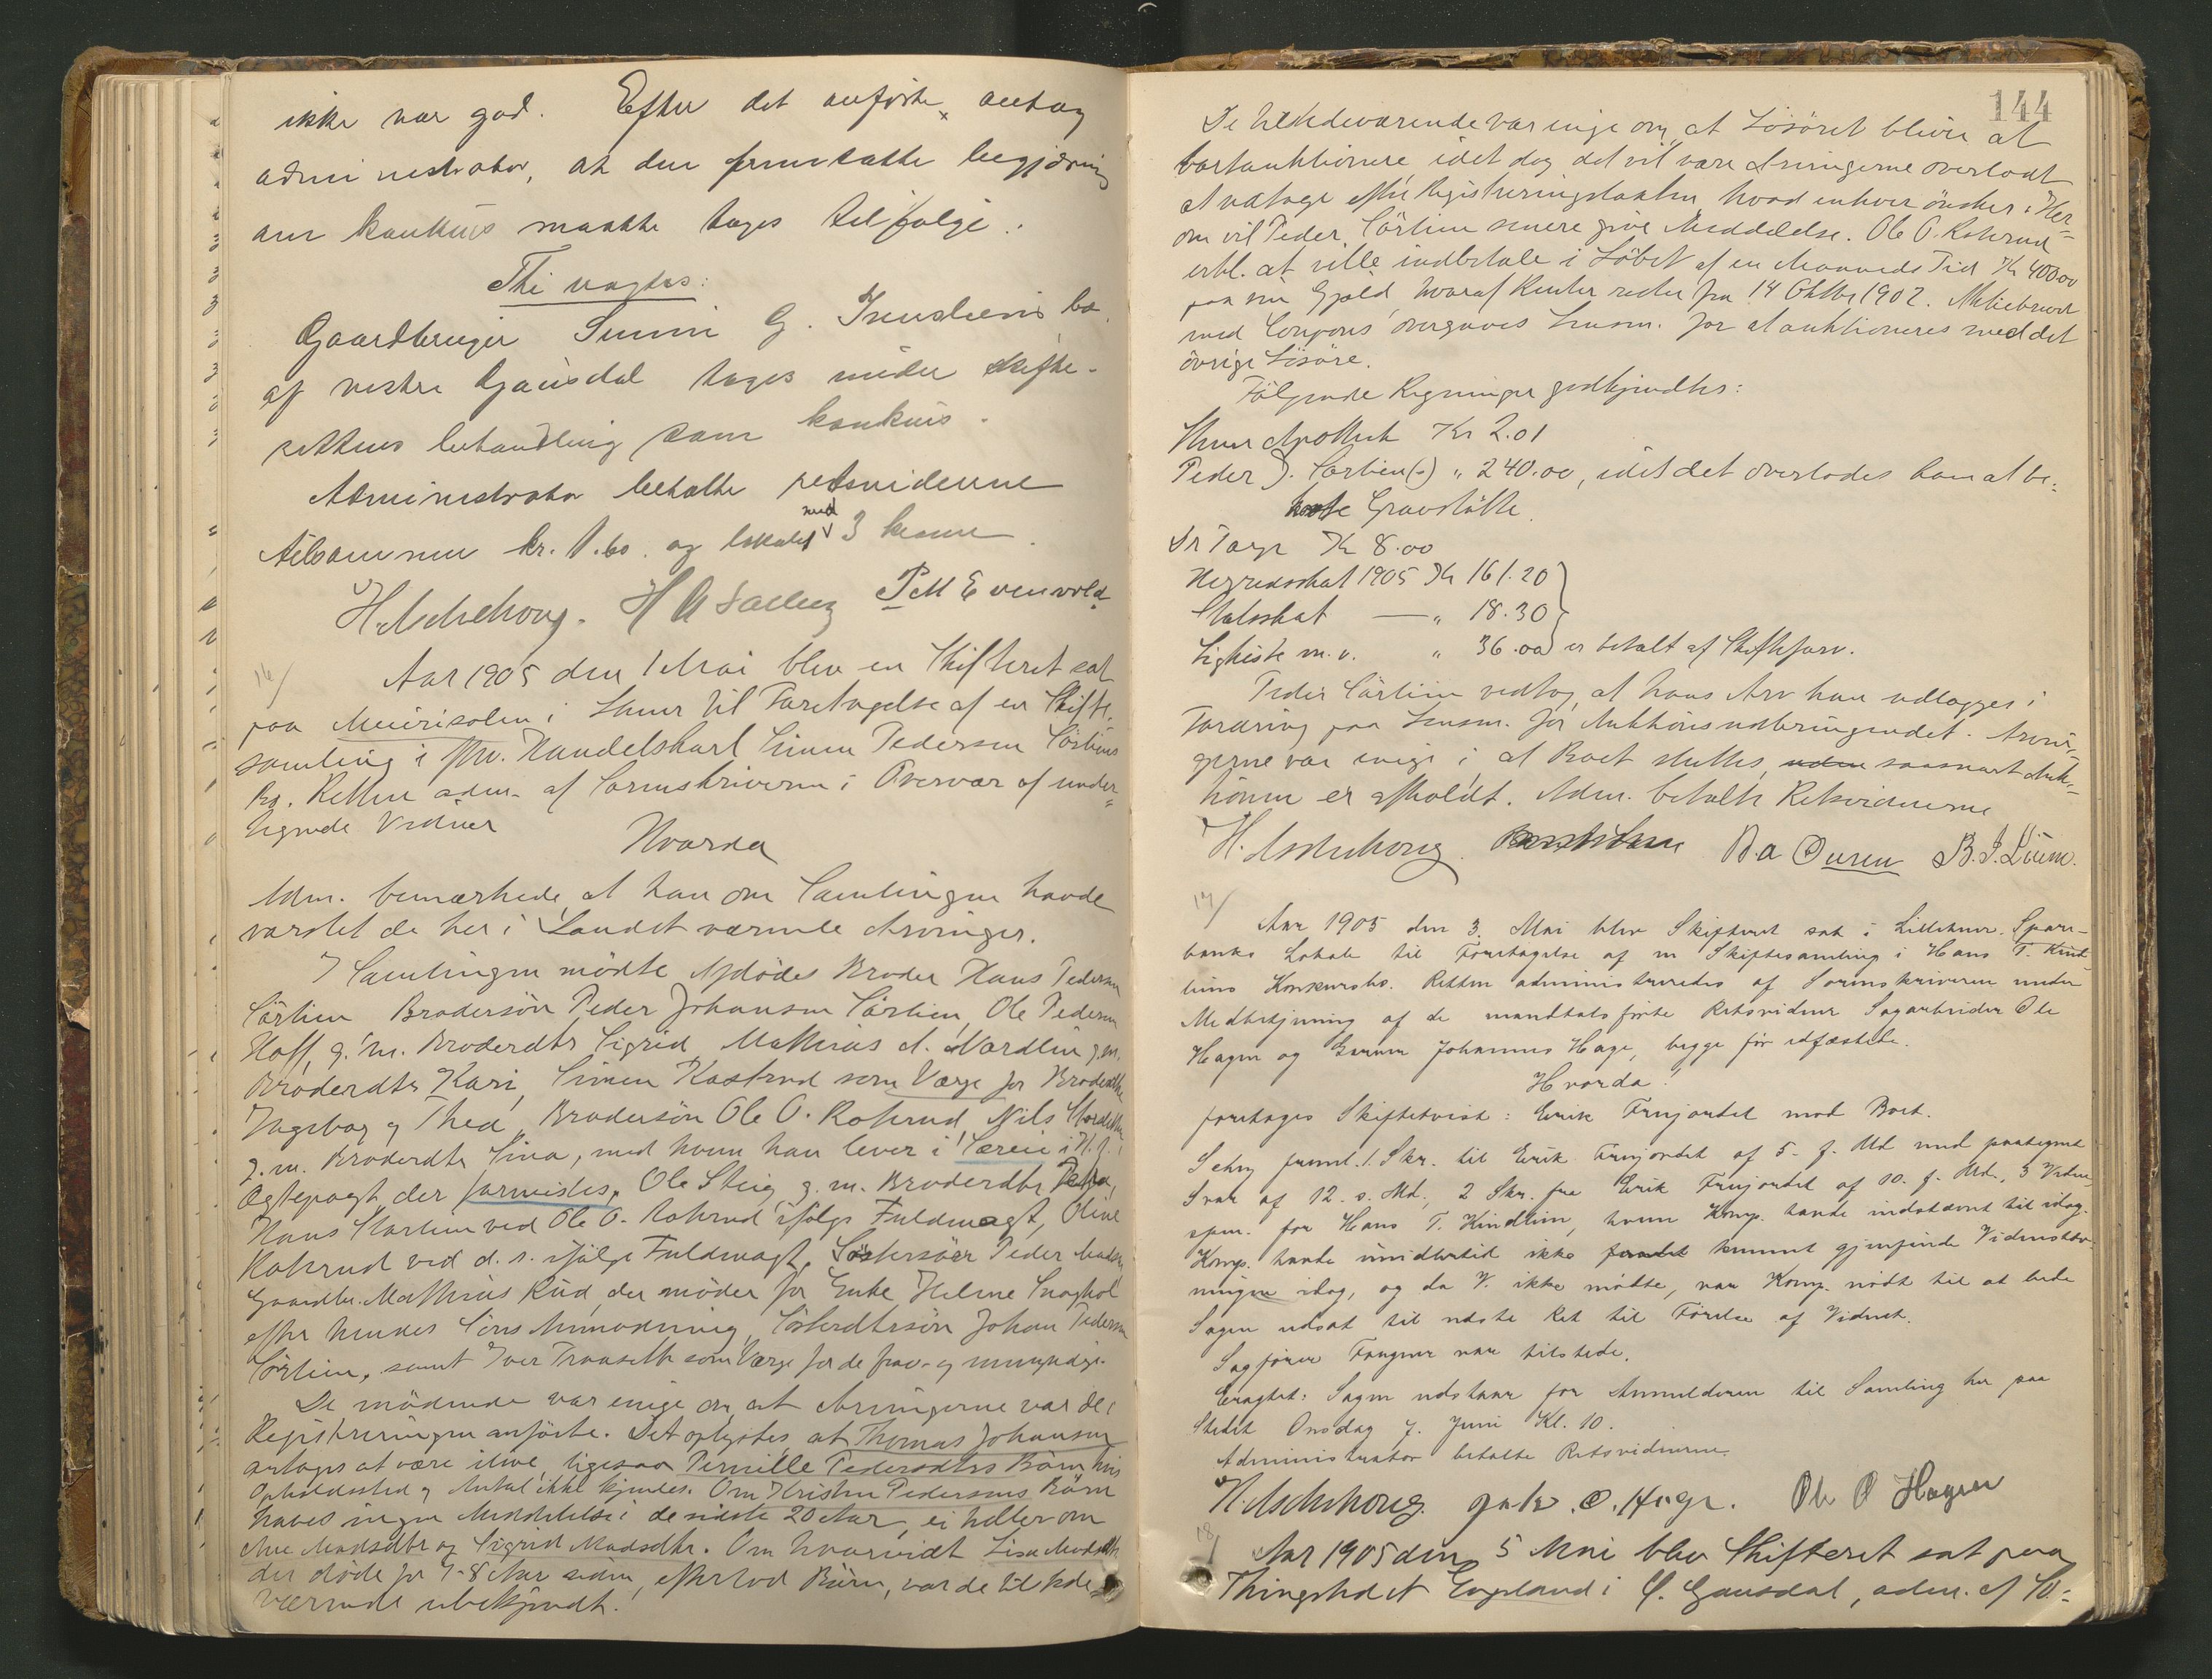 ikke var god. Efter det anførte antog
administrator, at den fremsatte begjæring
om konkurs maatte tages tilfølge.
Thi vagtes:
Gaardbruger Simen G. bo
af vestre Gausdal tages under skifte-
rettens behandling som konkurs.
Administrator betalte retsvidnerne
tilsammen kr. 1.60. og lokalet med 3 kroner.
H. Aschehoug. P M Evenvold
16/
Aar 1905 den 1 Mai blev en Skifteret sat
paa Meierisalen i Thuer til Foretagelse af en Skifte-
samling i Handelskarl Simen Pedersen Sørliens
Bo. Retten adm. af Sorenskriveren i Overvær af under-
tegnede Vidner
Hvorda
Adm. bemærkede, at han om Samlingen havde
varslet de her i Landet værende Arvinger.
I Samlingen mødte Afdødes Broder Hans Pedersen
Sørlien Brodersøn Peder Johansen Sørlien, Ole Pedersen
Hoff, g. m. Broderdtr Sigrid, Mathias A. Nordlien g. m.
Broderdtr Kari, Simen Kastrud som Værge for Broderdtr
Ingebor og Thea, Brodersøn Ole O. Rokrud, Nils
g. m. Broderdtr Sina, med hvem han lever i Særeie i H. t.
Ægtepagt, der foreviistes, Ole Steig g. m. Broderdtr Petra,
Hans ved Ole O. Rokrud ifølge Fuldmagt, Oline
Rokrud ved d. s. ifølge Fuldmagt, Søstersøn Peder Madsen,
Gaardbr. Mathias Rud, der møder for Enke Helene
efter hendes Søns Anmodning, Søsterdtrsøn Johan Pedersen
Sørlien, samt Iver som Værge for de frav- og umyndige.
De mødende var enige om, at Arvingerne var de i
Registreringen anførte. Det oplystes, at Thomas Johansen
antages at være ilive, ligesaa Pernille Pedersdtrs Børn, hvis
Opholdssted og Antal ikke kjendes. Om Kristen Pedersens Børn
haves ingen Meddelelse i de sidste 20 Aar, ei heller om
Ane Madsdtr og Sigrid Madsdtr. Om hvorvidt Lisa Madsdtr
der døde for 7-8 Aar siden, efterlod Børn, var de tilstede-
værende ubekjendt.
144
De tilstedeværende var enige om, at Løsøret bliver at
bortauktionere, idet dog det vil være Arvingerne overladt
at udtage efter Registreringstaksten, hvad enhver ønsker. Her-
om vil Peder Sørlien senere give Meddelelse. Ole O. Rokrud
erkl. at ville indbetale i Løbet af en Maaneds Tid Kr 400.00
paa sin Gjæld, hvoraf Renter rester fra 14 Oktbr 1902. Aktiebrevet
med Coupons overgaves Lensm. for at auktioneres med det
øvrige Løsøre.
Følgende Regninger godkjendtes:
Apothek Kr 2.01
Peder J. Sørlien(s) " 240.00, idet det overlodes ham at be-
koste Gravstøtte.
Dr Kr 8.00
Herredsskat 1905 Kr 161.20
Statsskat — " 18.30
Ligkiste m. v. " 36.00 er betalt af Skifteforv.
Peder Sørlien vedtog, at hans Arv kan udlægges i
Fordring paa Lensm. for Auktionsudbringendet. Arvin-
gerne var enige i, at Boet sluttes, uden saasnart Auk-
tionen er afholdt. Adm. betalte Retsvidnerne
H. Aschehoug. B. J. Lüem.
17/
Aar 1905 den 3. Mai blev Skifteret sat i Lillehamr. Spare-
banks Lokale til Foretagelse af en Skiftesamling i Hans T. Kind-
liens Konkursbo. Retten administreredes af Sorenskriveren under
Medbetjening af de mandtalsførte Retsvidner Sagarbeider Ole
Hagen og Johannes Hage, begge før edfæstede.
Hvorda!
foretages Skiftetvist: Erik Frujordet mod Boet.
freml. 1. Skr. til Erik Frujordet af 5. f. Md med paategnet
Svar af 12. s. Md., 2 Skr. fra Erik Frujordet af 10. f. Md., 3 Vidne-
spm. for Hans T. Kindlien, hvem Komp. havde indstævnt til idag.
Komp. havde imidlertid ikke fundet kunnet gjenfinde Vidnestæv-
ningen idag, og da V. ikke mødte, var Komp. nødt til at bede
Sagen udsat til næste Ret til Førelse af Vidnet.
Sagfører Faugner var tilstede.
Eragtet: Sagen udstaar for Anmelderen til Samling her paa
Stedet Onsdag 7. Juni Kl. 10.
Administrator betalte Retsvidnerne.
H. Aschehoug. Joh. O. Hage. Ole O Hagen
18/
Aar 1905 den 5 Mai blev Skifteret sat paa
Thingstedet Engeland i Ø. Gausdal, adm. af So-